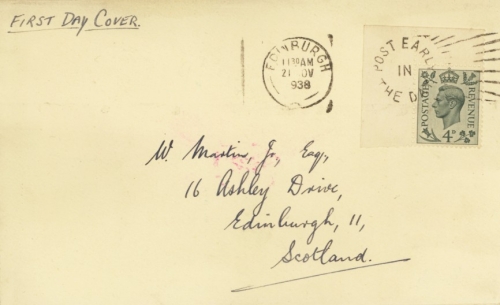 FIRST DAY COVER.
EDINBURGH
11 30 AM
21 NOV
1938
POST EARLY
IN
THE D
POSTAGE
REVENUE
4D
W. Martin, Jr., Esq.,
16 Ashley Drive,
Edinburgh, 11,
Scotland.